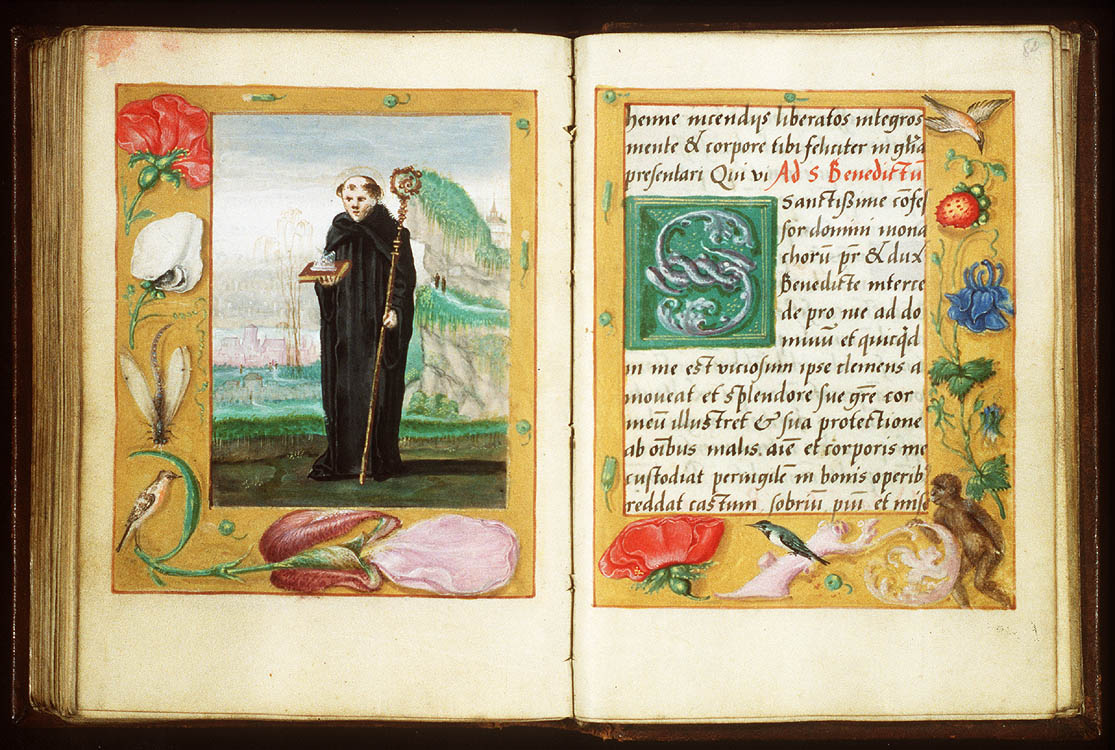 henne incendijs liberatos integros
mente & corpore tibi feliciter in gl̃ia
presentari Qui vi Ad S Benedictũ
Sanctissime cõfes
sor domini mona
chorũ pr̃ & dux
Benedicte interce
de pro me ad do
minũ et quicq̃d
in me est viciosum ipse clemens a
moveat et splendore sue gr̃e cor
meũ illustret & sua protectione
ab oĩbus malis. aĩe et corporis me
custodiat pervigilem in bonis operib
reddat castum sobriũ piũ et mise